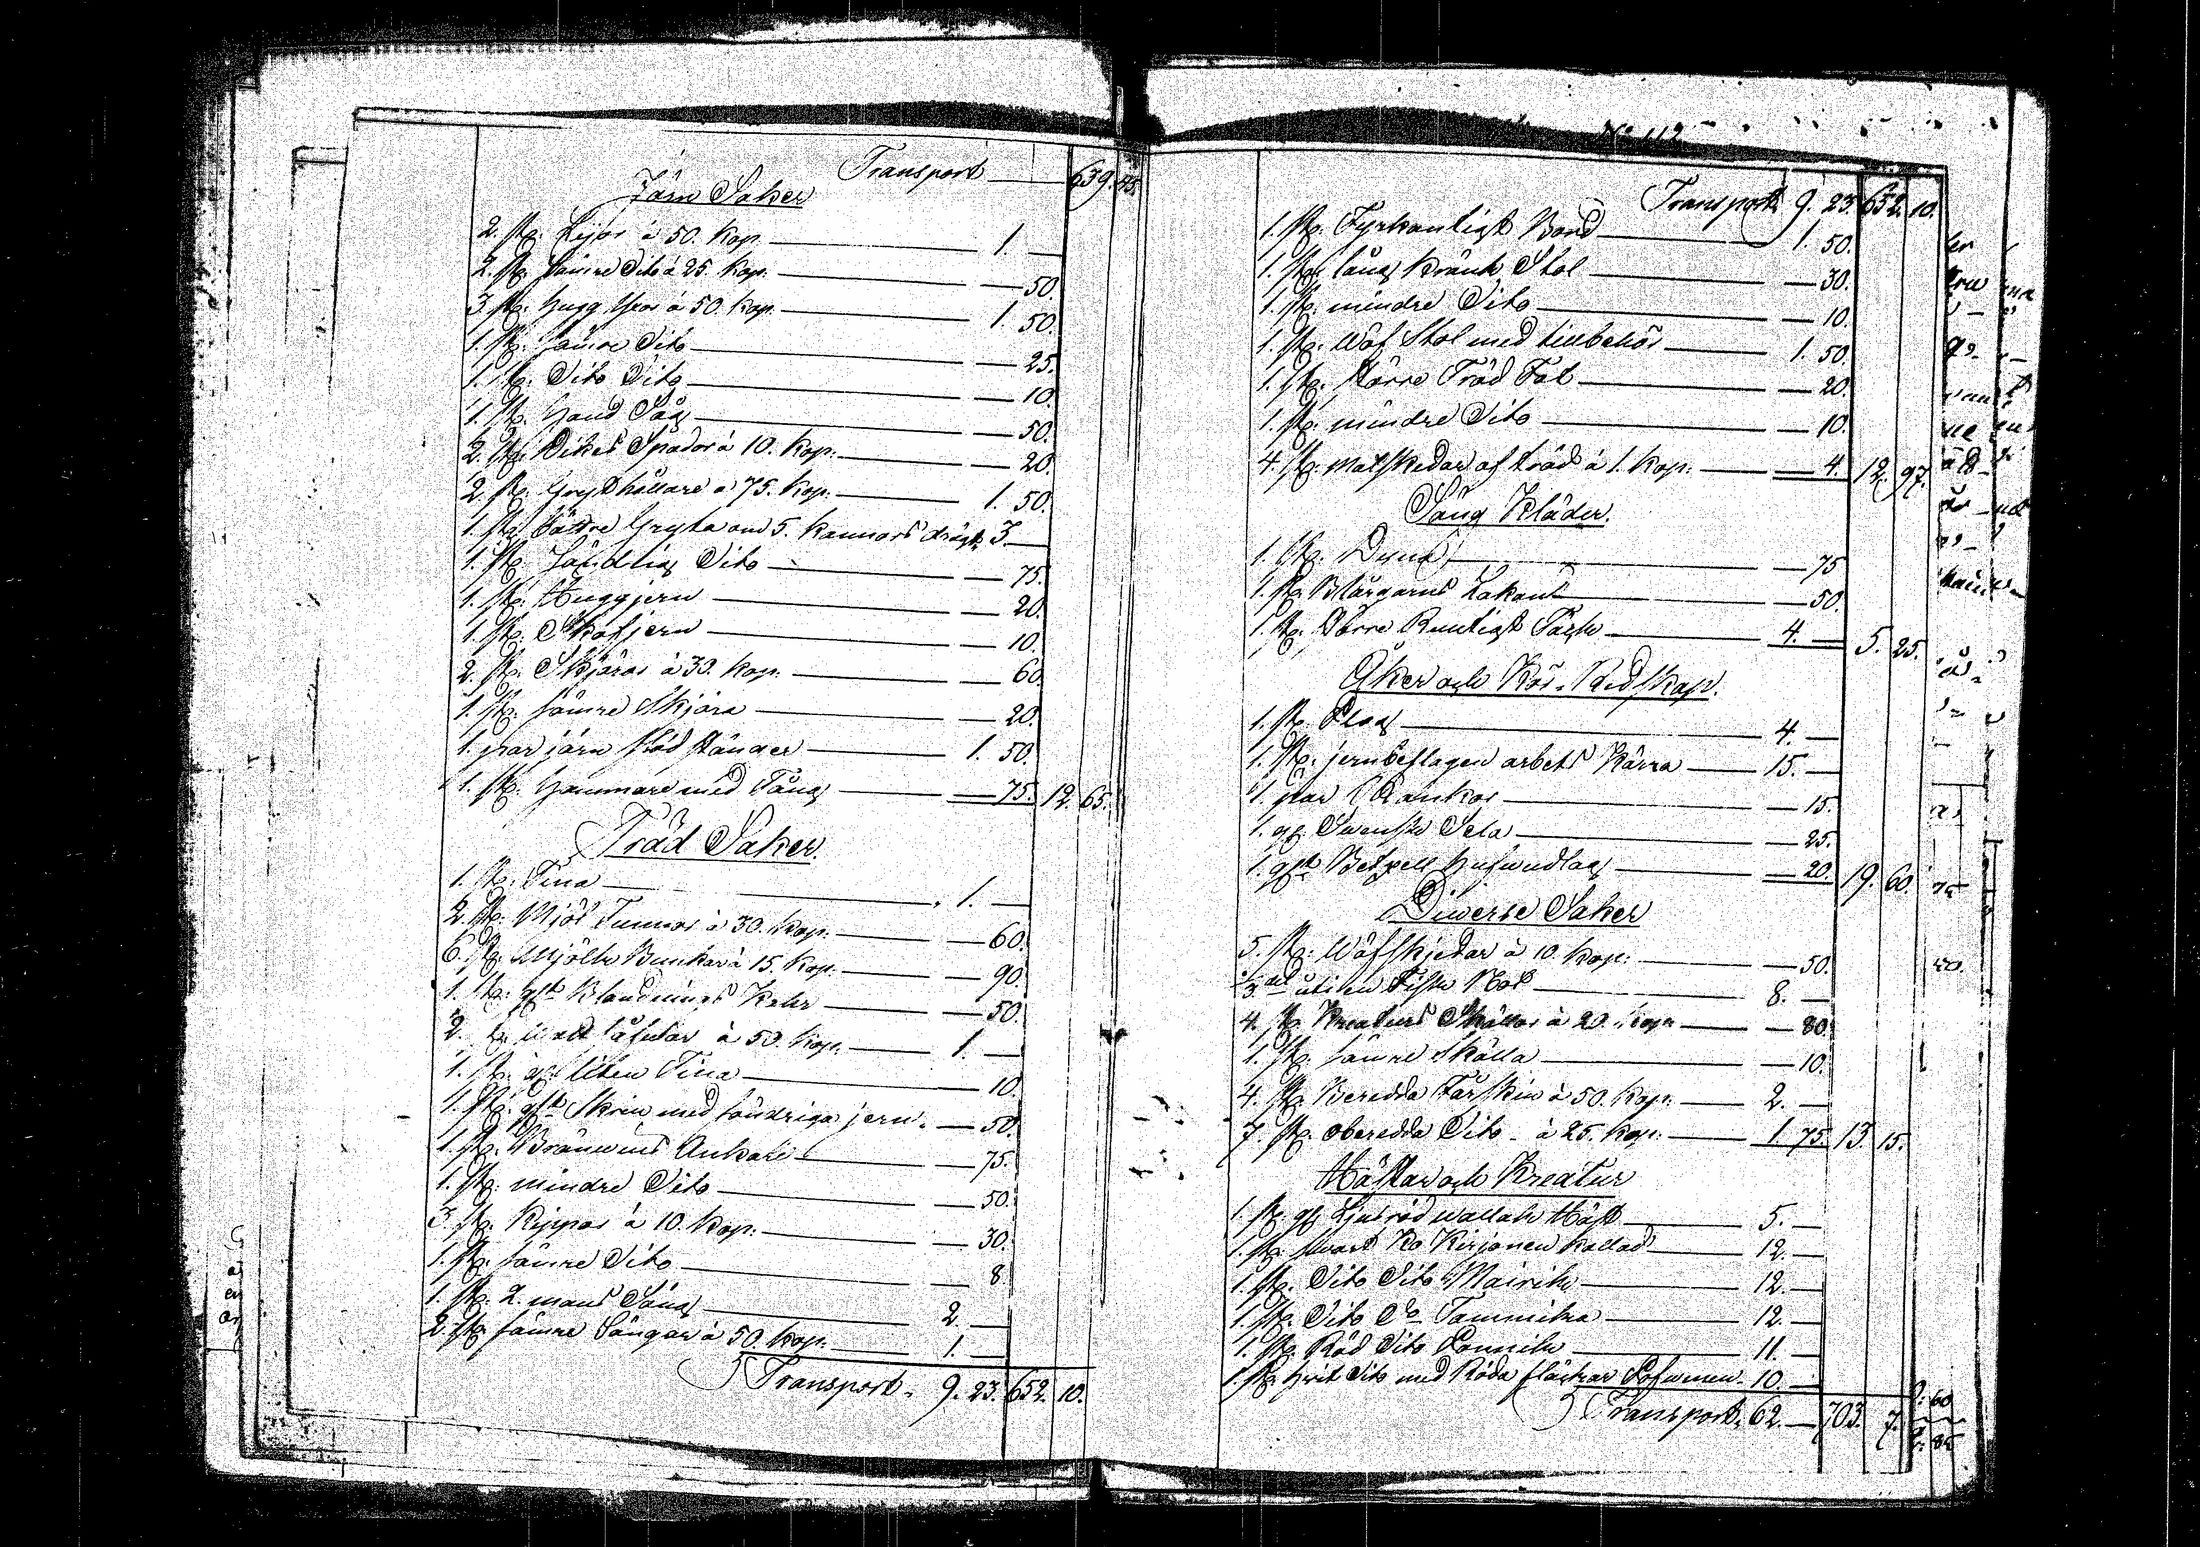 Transport 639. 45.
Järn Saker
2. st. Lijor á 50. kop. 1. —
2. st. sämre Dito á 25. kop. — 50.
3 st. hugg Yxor á 50. kop. 1. 50.
1. st. sämre Dito — 25.
1. st. Dito Dito — 10.
1. st. Hand Såg — 50.
2. st. Dikes Spador á 10. kop. — 20.
2. st. Grythållare á 75. kop. 1. 50.
1. st. större Gryta om 5. kannors drägt 3. —
1. st. Söndrig Dito — 75.
1. st. Huggjern — 20.
1. st. Skafjern — 10.
2. st. Skjäror á 30. kop. — 60.
1. st. sämre Skjära — 20.
1. par järn stöd stänger 1. 50.
1. st. Hammare med Tång — 75. 12. 65.
Träd Saker.
1. st. Tina 1. —
2. st. Mjöl Tunnor á 30. kop. — 60.
6. st. Mjölk Bunkar á 15. kop. — 90.
1. st. gft Blandnings Kahr — 50.
2. st. á 50. kop. 1. —
1. st. gl liten Tina — 10.
1. st. gft Skrin med söndriga jern — 50.
1. st. Bränwins Ankare — 75.
1. st. mindre Dito — 50.
3. st. Kippor á 10. kop. — 30.
1. st. sämre Dito — 8.
1. st. 2. mans Säng 2. —
2. st. sämre Sängar á 50. kop. 1. —
Transport. 9. 23. 652. 10.
No 112
Transport 9. 23. 652. 10.
1. st. Fyrkantigt Bord 1. 50.
1. st. lång bränk Stol — 30.
1. st. mindre Dito — 10.
1. st. Wäf Stol med tillbehör 1. 50.
1. st. större Träd Fat — 20.
1. st. mindre Dito — 10.
4. st. matskedar af träd á 1. kop. — 4. 12. 97.
Säng Kläder.
1. st. Dyna — 75
1. st. Blårgarns Lakan — 50.
1. st. större Ruutigt Täcke 4. — 5. 25.
Åker och Kör-Redskap.
1. st. Plog 4. —
1. st. jernbeslagen arbets Kärra 15. —
1. par Rankor — 15.
1. gl. Swensk Sela — 25.
1. gft Betzell hufwudlag — 20. 19. 60.
Diverse Saker
5. st. Wäfskjedar á 10. kop. — 50.
1/3 del uti en Fisk Not 8. —
4. st. Kreaturs Skällor á 20. kop. — 80.
1. st. sämre Skälla — 10.
4. st. Beredda Fårskin á 50. kop. 2. —
7. st. oberedda Dito á 25. kop. 1. 75. 13. 15.
Hästar och Kreatur
1. st. gl. Ljusröd wallak Häst 5. —
1. st. swart Ko Kirjonen kallad 12. —
1. st. Dito Dito Mairik 12. —
1. st. Dito Do Tammika 12. —
1. st. Röd Dito Lonnik 11. —
1. st. hwit Dito med Röda fläckar 10. —
Transport. 62. — 703. 7.